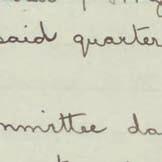 said quarter
mmittee da